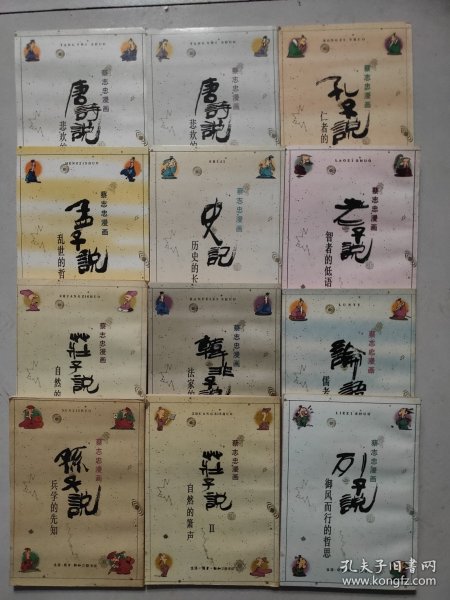 TANG SHI SHUO
蔡志忠漫画
唐詩説
悲欢的
TANG SHI SHUO
蔡志忠漫画
唐詩説
悲欢的
KONGZI SHUO
蔡志忠漫画
孔子説
仁者的
MENGZI SHUO
蔡志忠漫画
孟子説
乱世的哲
SHIJI
蔡志忠漫画
史記
历史的长
LAOZI SHUO
蔡志忠漫画
老子説
智者的低语
ZHUANGZI SHUO
蔡志忠漫画
莊子説
自然的
HANFEIZI SHUO
蔡志忠漫画
韓非子説
法家的
LUNYU
蔡志忠漫画
論語
儒者
SUNZI SHUO
蔡志忠漫画
孫子説
兵学的先知
生活·读书·新知三联书店
ZHUANGZI SHUO
蔡志忠漫画
莊子説
自然的箫声
II
生活·读书·新知三联书店
LIEZI SHUO
蔡志忠漫画
列子説
御风而行的哲思
生活·读书·新知三联书店
孔夫子旧书网
www.kongfz.com